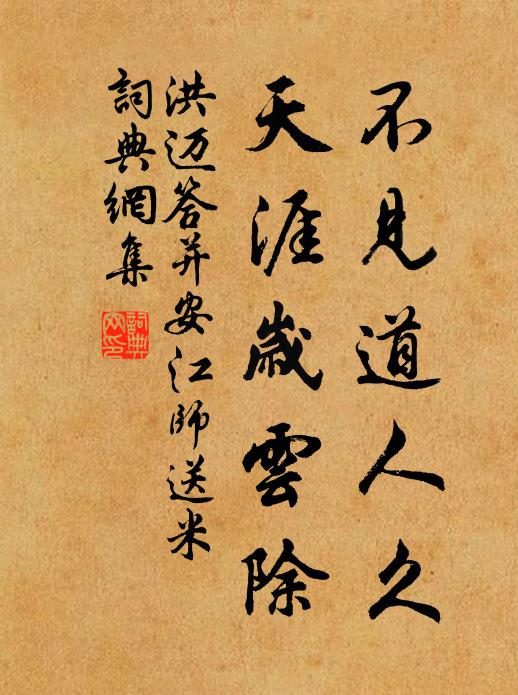 不見道人久
天涯歲雲除
洪迈答并安江師送米
詞典網集
詞典
网印